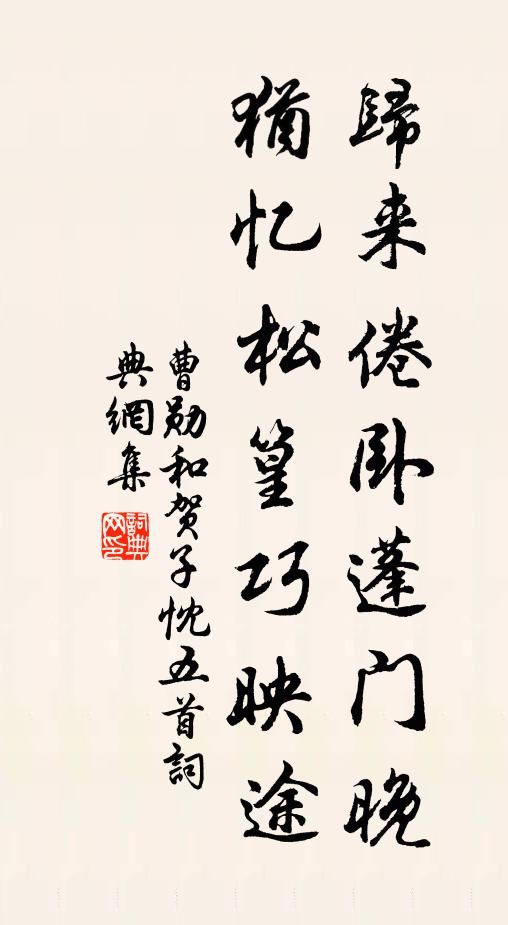 歸来倦卧蓬门晚
猶忆松篁巧映途
曹勛和贺子忱五首詞
典網集
詞典网印